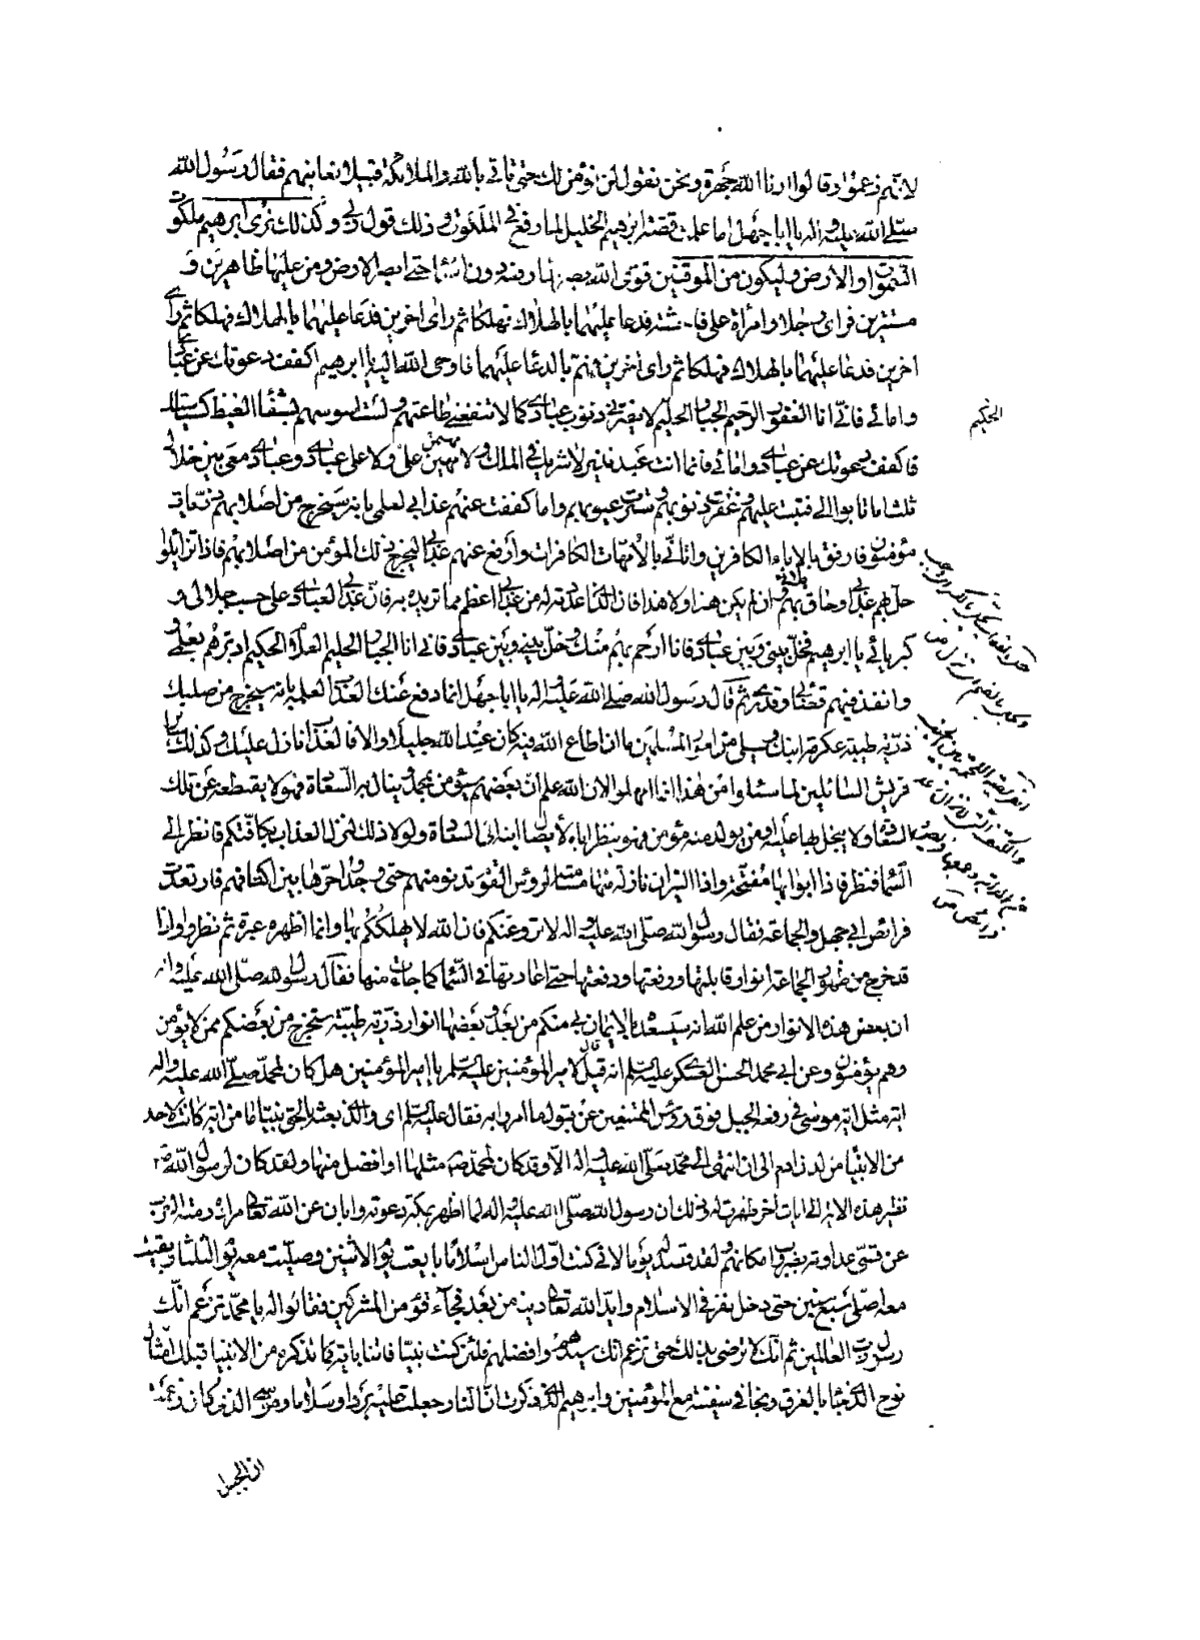 لانهم زعموا وقالوا ارنا الله جهرة ونحن نقول لن نؤمن لك حتى تاتي بالله والملائكة قبيلا نعاينهم فقال رسول الله
صلى الله عليه واله يا ابا جهل اما علمت قصة ابرهيم الخليل لما رفع في الملكوت وذلك قول ربي وكذلك نرى ابرهيم ملكوت
السموات والارض وليكون من الموقنين قوى الله بصره لما رفعه دون السماء حتى ابصر الارض ومن عليها ظاهرين و
مستترين فراى رجلا وامراة على فاحشة فدعا عليهما بالهلاك فهلكا ثم راى اخرين فدعا عليهما بالهلاك فهلكا ثم راى
اخرين فدعا عليهما بالهلاك فهلكا ثم راى اخرين فهم بالدعا عليهما فاوحى الله اليه يا ابرهيم اكفف دعوتك عن عبادى
وامائي فاني انا الغفور الرحيم الجبار الحليم لا يضرني ذنوب عبادي كما لا تنفعني طاعتهم ولست اسوسهم بشفاء الغيظ كسياستك
فاكفف دعوتك عن عبادي وامائي فانما انت عبد نذير لا شريك في الملك ولا مهيمن علي ولا على عبادي وعبادي معي بين خلال
ثلث اما تابوا الي فتبت عليهم وغفرت ذنوبهم وسترت عيوبهم واما كففت عنهم عذابي لعلمي بانه سيخرج من اصلابهم ذريات
مؤمنون فارفق بالاباء الكافرين واتانى بالامهات الكافرات وارفع عنهم عذابي ليخرج ذلك المؤمن من اصلابهم فاذا تزايلوا
حل بهم عذابي وحاق بهم بلائي وان لم يكن هذا ولا هذا فان الذي اعددته له من عذابي اعظم مما تريده به فان عذابي لعبادي على حسب جلالي و
كبريائي يا ابرهيم فخل بيني وبين عبادي فانا ارحم بهم منك وخل بيني وبين عبادي فاني انا الجبار الحليم العلام الحكيم ادبرهم بعلمي
وانفذ فيهم قضائي وقدري ثم قال رسول الله صلى الله عليه واله يا ابا جهل انما دفع عنك العذاب لعلمه بانه سيخرج من صلبك
ذرية طيبة عكرمة ابنك وسيلي من امور المسلمين ما ان اطاع الله فيه كان عند الله جليلا والا فالعذاب نازل عليك وكذلك سائر
قريش السائلين لما سئلوا من هذا انما امهلوا لان الله علم ان بعضهم سيؤمن بمحمد وينال به السعادة فهو لا يقتطعه عن تلك
السعادة ولا يبخل بها عليه او من يولد منه مؤمن فهو ينظر اباه لايصال ابنه الى السعادة ولولا ذلك لنزل العذاب بكافتكم فانظر الى
السماء فنظر فاذا ابوابها مفتحة واذا النيران نازلة منها مسامتة لرؤس القوم تدنو منهم حتى وجدوا حرها بين اكتافهم فارتعدت
فرائص ابي جهل والجماعة فقال رسول الله صلى الله عليه واله لا تروعنكم فان الله لا يهلككم بها وانما اظهره عبرة ثم نظروا واذا
قد خرج من ظهور الجماعة انوار قابلتها ورفعتها ودفعتها حتى اعادتها في السماء كما جاءت منها فقال رسول الله صلى الله عليه واله
ان بعض هذه الانوار من علم الله انه سيسعده بالايمان بي منكم من بعد وبعضها انوار ذرية طيبة ستخرج من بعضكم ممن لا يؤمن
وهم يؤمنون وعن ابي محمد الحسن العسكري عليه السلم انه قال قيل لامير المؤمنين عليه السلم يا امير المؤمنين هل كان لمحمد صلى الله عليه واله
اية مثل اية موسى في رفعه الجبل فوق رؤس الممتنعين عن قبول ما امروا به فقال عليه السلم اي والذي بعثه بالحق نبيا ما من اية كانت لاحد
من الانبياء من لدن ادم الى ان انتهى الى محمد صلى الله عليه واله الا وقد كان لمحمد ص مثلها او افضل منها ولقد كان لرسول الله ص
نظير هذه الاية الى ايات اخر ظهرت له وذلك ان رسول الله صلى الله عليه واله لما اظهر بمكة دعوته وابان عن الله تعالى مراده رمته العرب
عن قسي عداوتها بضروب امكانهم ولقد قصدته يوما لاني كنت اول الناس اسلاما بايعت يوم الاثنين وصليت معه يوم الثلثاء وبقيت
معه اصلي سبع سنين حتى دخل نفر في الاسلام وايد الله تعالى دينه من بعد فجاءه قوم من المشركين فقالوا له يا محمد تزعم انك
رسول رب العالمين ثم انك لا ترضى بذلك حتى تزعم انك سيدهم وافضلهم فلئن كنت نبيا فاتنا باية كما تذكره من الانبياء قبلك مثال
نوح الذي جاء بالغرق ونجا في سفينته مع المؤمنين وابرهيم الذي ذكرت ان النار جعلت عليه بردا وسلاما وموسى الذي كان زعمت
ان الجبل
الحكيم